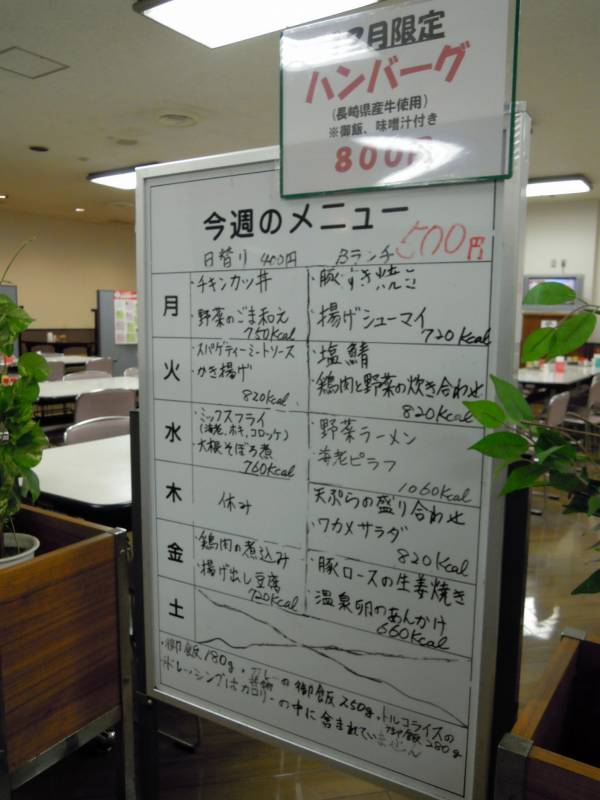 7月限定
ハンバーグ
(長崎県産牛使用)
※御飯、味噌汁付き
800円
今週のメニュー
日替り 400円 Bランチ 500円
月
・チキンカツ丼
・野菜のごま和え
750Kcal
・豚すき焼
・揚げシューマイ
720Kcal
火
・スパゲティーミートソース
・かき揚げ
820Kcal
・塩鯖
・鶏肉と野菜の炊き合わせ
820Kcal
水
・ミックスフライ
(海老、ホキ、コロッケ)
・大根そぼろ煮
760Kcal
・野菜ラーメン
・海老ピラフ
1060Kcal
木
休み
・天ぷらの盛り合わせ
・ワカメサラダ
820Kcal
金
・鶏肉の煮込み
・揚げ出し豆腐
720Kcal
・豚ロースの生姜焼き
・温泉卵のあんかけ
660Kcal
土
・御飯180g・カレーの御飯250g、トルコライスの御飯280g
ドレッシングはカロリーの中に含まれていません